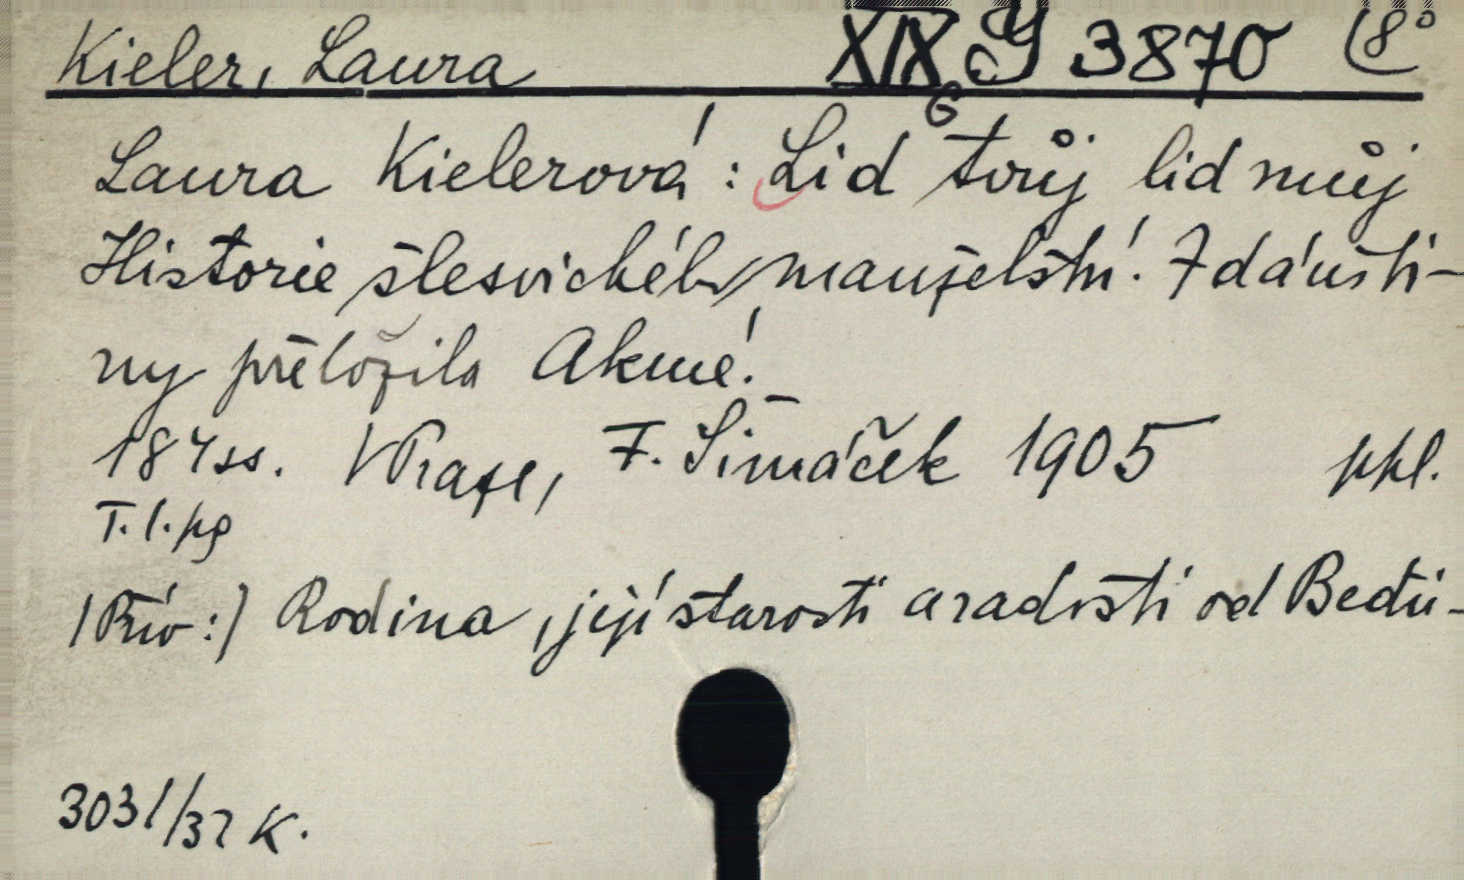 Kieler, Laura XIX G J 3870 8°
Laura Kielerová: Lid tvůj lid můj
Historie šlesvického manželství. Z dánšti-
ny přeložila Akmé.
184 ss. V Praze, F. Šimáček 1905 ppl.
T. l. pg
/Přív:/ Rodina, její starosti a radosti od Bedři-
3031/37 K.